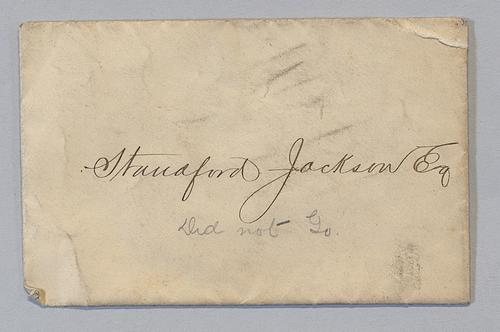 Standford Jackson Eq
Did not Go.